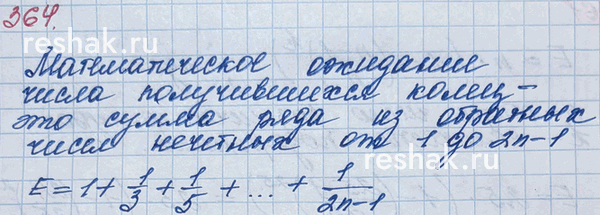 364.
Математическое ожидание
числа получившихся колец –
это сумма ряда из обратных
чисел нечетных от 1 до 2n-1
E = 1 + 1/3 + 1/5 + ... + 1/(2n-1)
reshak.ru
reshak.ru
reshak.ru
reshak.ru